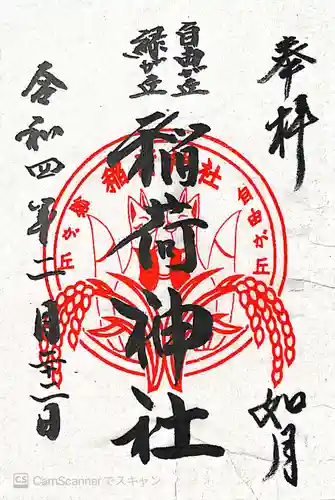 奉拝
如月
自由が丘
緑が丘
稲荷神社
令和四年二月二十二日
稲荷神社
自由が丘
緑が丘
CS CamScannerでスキャン